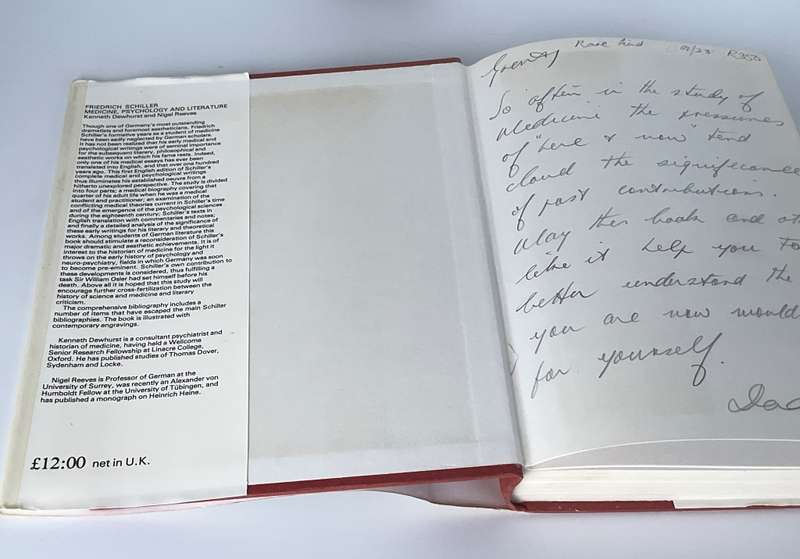 FRIEDRICH SCHILLER
MEDICINE, PSYCHOLOGY AND LITERATURE
Kenneth Dewhurst and Nigel Reeves
Though one of Germany's most outstanding
dramatists and foremost aestheticians, Friedrich
Schiller's formative years as a student of medicine
have been sadly neglected by German scholars.
It has not been realized that his early medical and
psychological writings were of seminal importance
for the subsequent literary, philosophical and
aesthetic works on which his fame rests. Indeed,
only one of his medical essays has ever been
translated into English, and that over one hundred
years ago. This first English edition of Schiller's
complete medical and psychological writings
thus illuminates his established oeuvre from a
hitherto unexplored perspective. The study is divided
into four parts: a medical biography covering that
quarter of his adult life when he was a medical
student and practitioner; an examination of the
conflicting medical theories current in Schiller's time
and of the emergence of the psychological sciences
during the eighteenth century; Schiller's texts in
English translation with commentaries and notes;
and finally a detailed analysis of the significance of
these early writings for his literary and theoretical
works. Among students of German literature this
book should stimulate a reconsideration of Schiller's
major dramatic and aesthetic achievements. It is of
interest to the historian of medicine for the light it
throws on the early history of psychology and
neuro-psychiatry, fields in which Germany was soon
to become pre-eminent. Schiller's own contribution to
these developments is considered, thus fulfilling a
task Sir William Osler had set himself before his
death. Above all it is hoped that this study will
encourage further cross-fertilization between the
history of science and medicine and literary
criticism.
The comprehensive bibliography includes a
number of items that have escaped the main Schiller
bibliographies. The book is illustrated with
contemporary engravings.
Kenneth Dewhurst is a consultant psychiatrist and
historian of medicine, having held a Wellcome
Senior Research Fellowship at Linacre College,
Oxford. He has published studies of Thomas Dover,
Sydenham and Locke.
Nigel Reeves is Professor of German at the
University of Surrey, was recently an Alexander von
Humboldt Fellow at the University of Tübingen, and
has published a monograph on Heinrich Heine.
£12:00 net in U.K.
R350
So often in the study of
Medicine the pressures
of "here & now" tend
cloud the significance
of past contributions.
May this book and
like it help you to
better understand the
you are now
for yourself.